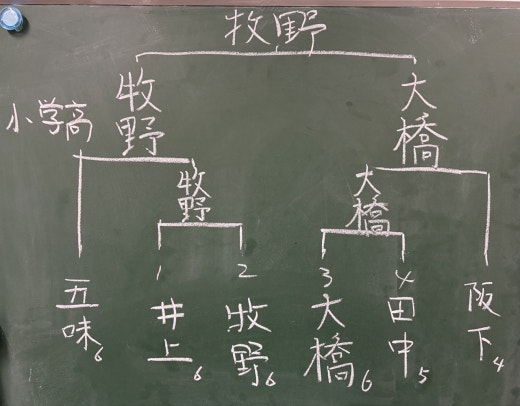 牧野
小学高
牧野
大橋
牧野
大橋
五味6
1 井上6
2 牧野6
3 大橋6
4 田中5
阪下4